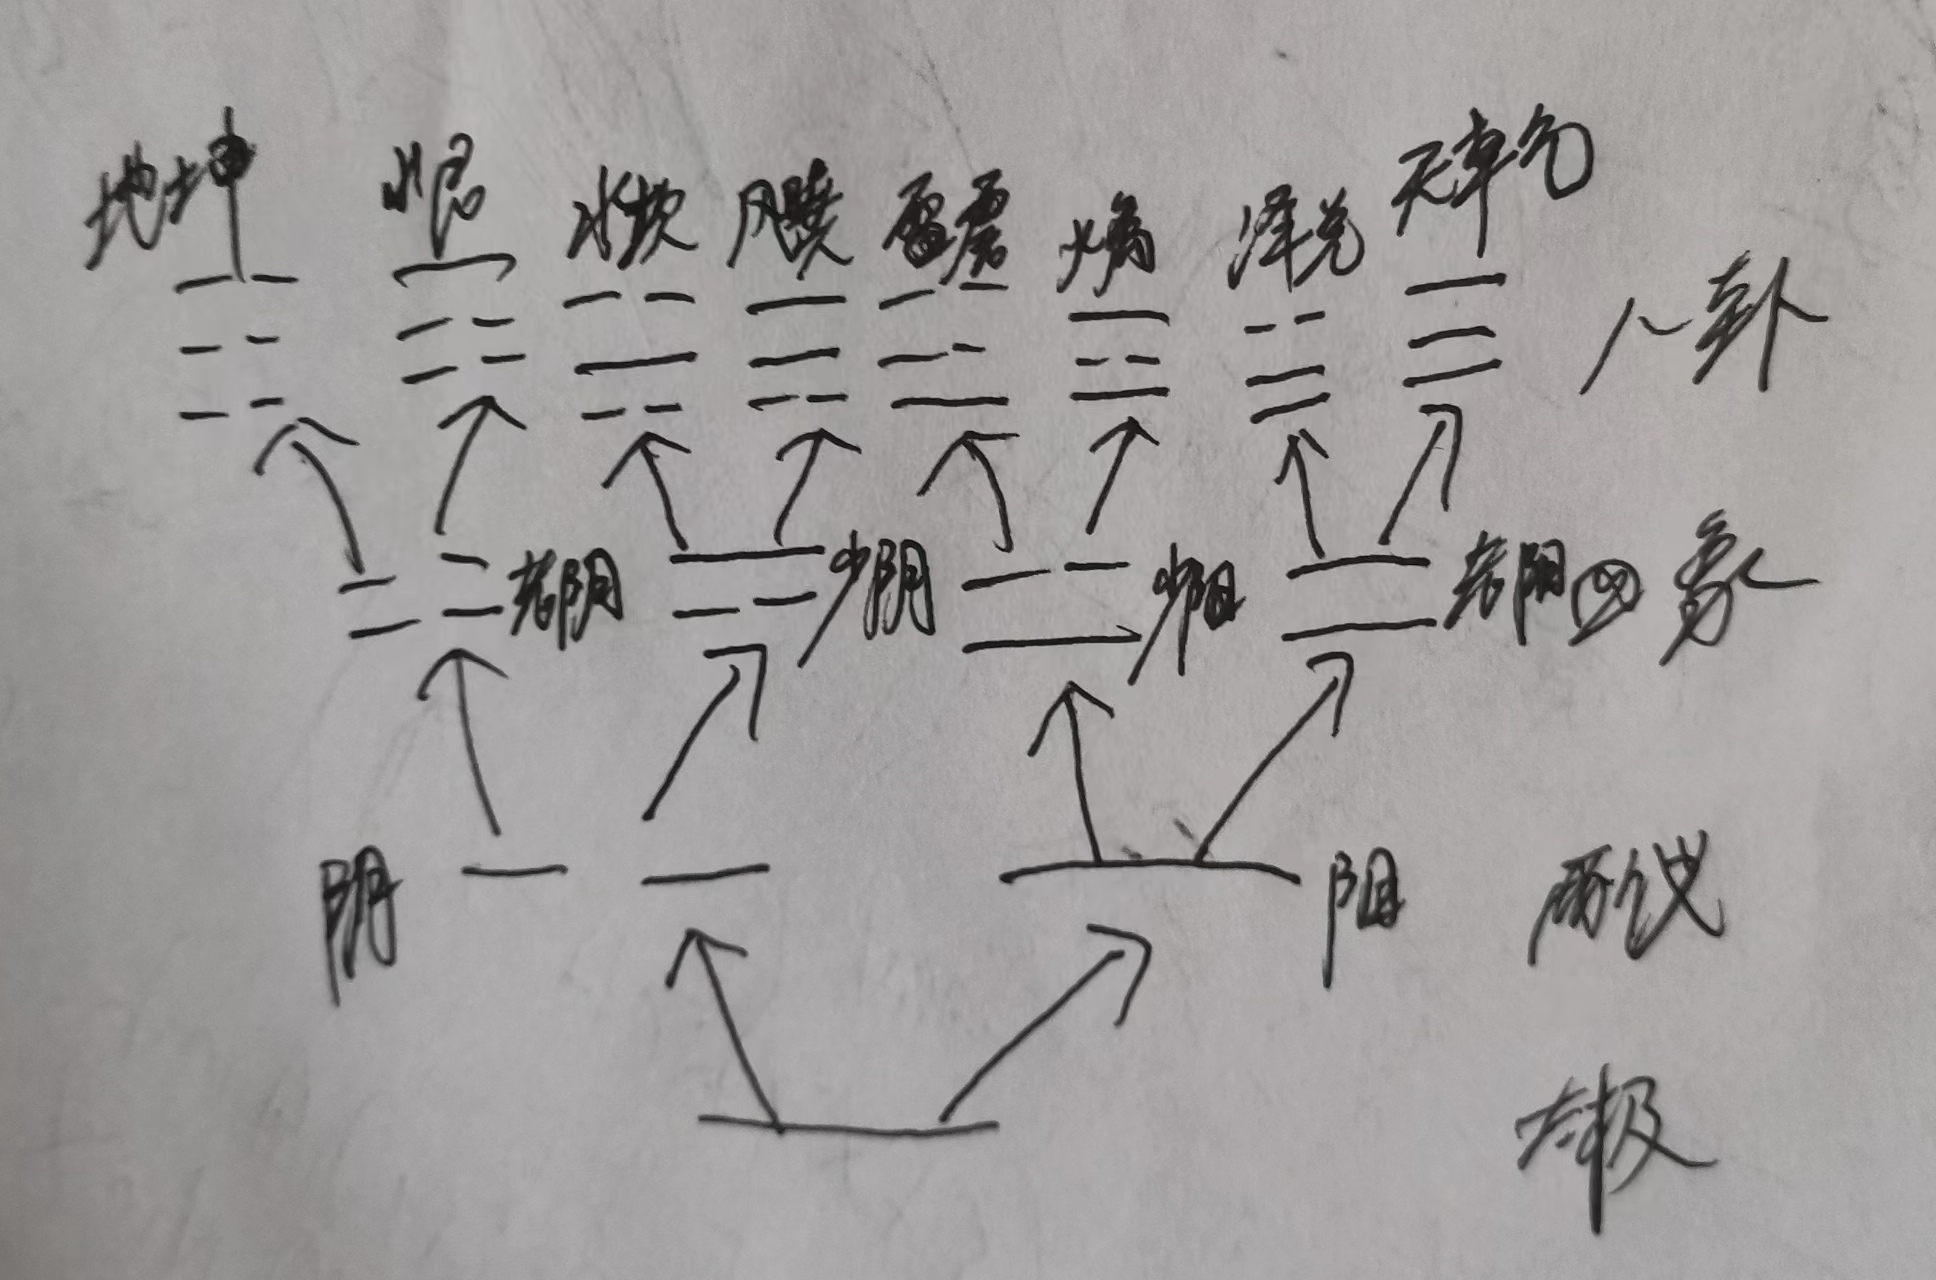 地坤 山艮 水坎 风巽 雷震 火离 泽兑 天乾 八卦
老阴 少阴 少阳 老阳 四象
阴 阳 两仪
太极